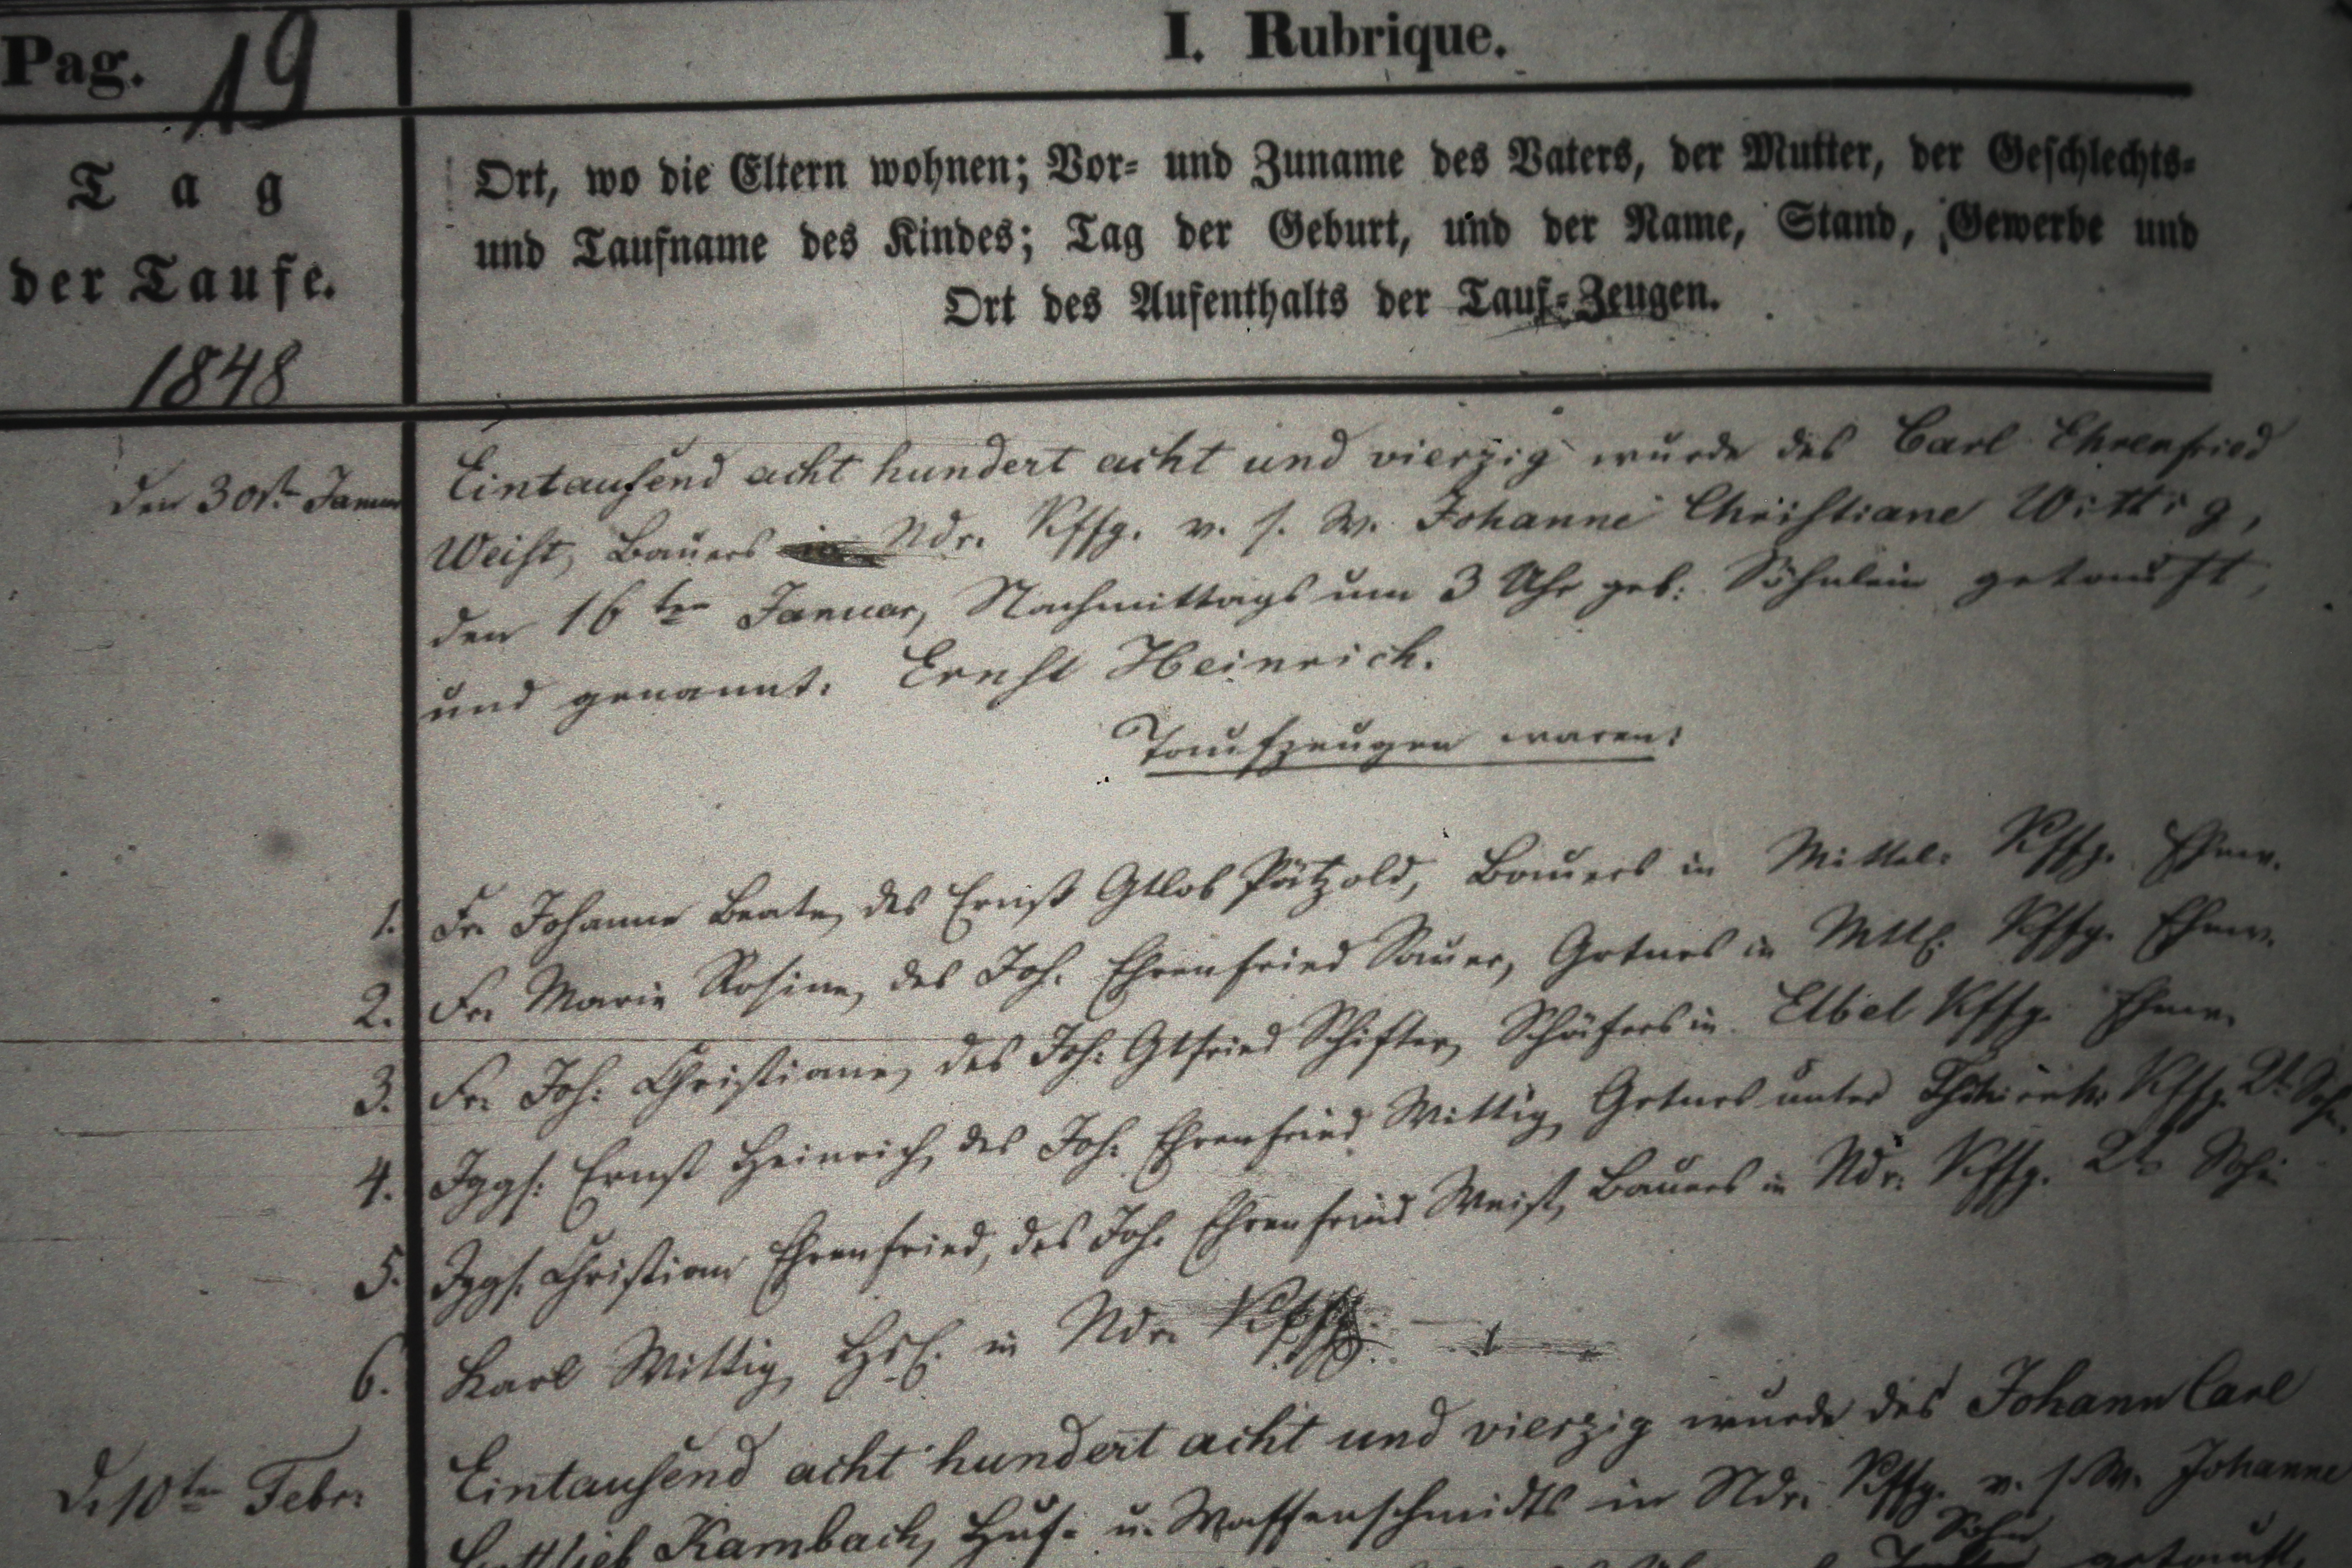 Pag. 19
I. Rubrique.
Tag
der Taufe.
1848
Ort, wo die Eltern wohnen; Vor- und Zuname des Vaters, der Mutter, der Geschlechts-
und Taufname des Kindes; Tag der Geburt, und der Name, Stand, Gewerbe und
Ort des Aufenthalts der Tauf-Zeugen.
den 30st. Januar
Eintausend acht hundert acht und vierzig wurde des Carl Ehrenfried
Weist, Bauers in Ndr. Kffg. v. s. W. Johanne Christiane Wittig,
den 16ten Januar, Nachmittags um 3 Uhr geb: Söhnlein getauft,
und genannt. Ernst Heinrich.
Taufzeugen waren:
1. Fr. Johanne Beate, des Ernst Gtlob Pätzold, Bauers in Mittel- Kffg. Ehew.
2. Fr. Marie Rosine, des Joh. Ehrenfried Sauer, Grtners in Mttl. Kffg. Ehew.
3. Fr. Joh: Christiane, des Joh: Gtfried Schifter, Schäfers in Elbel Kffg. Ehew.
4. Jggs: Ernst Heinrich, des Joh: Ehrenfried Wittig, Grtners unter Kffg. 2t. Sohn
5. Jggs. Christian Ehrenfried, des Joh. Ehrenfried Weist, Bauers in Ndr. Kffg. 2t. Sohn
6. Karl Wittig, Hsl. in Ndr. Kffg.
D. 10ten Febr.
Eintausend acht hundert acht und vierzig wurde des Johann Carl
Gottlieb Kambach, Huf- u. Waffenschmidts in Ndr. Kffg. v. s. W. Johanne
Sohn
getauft